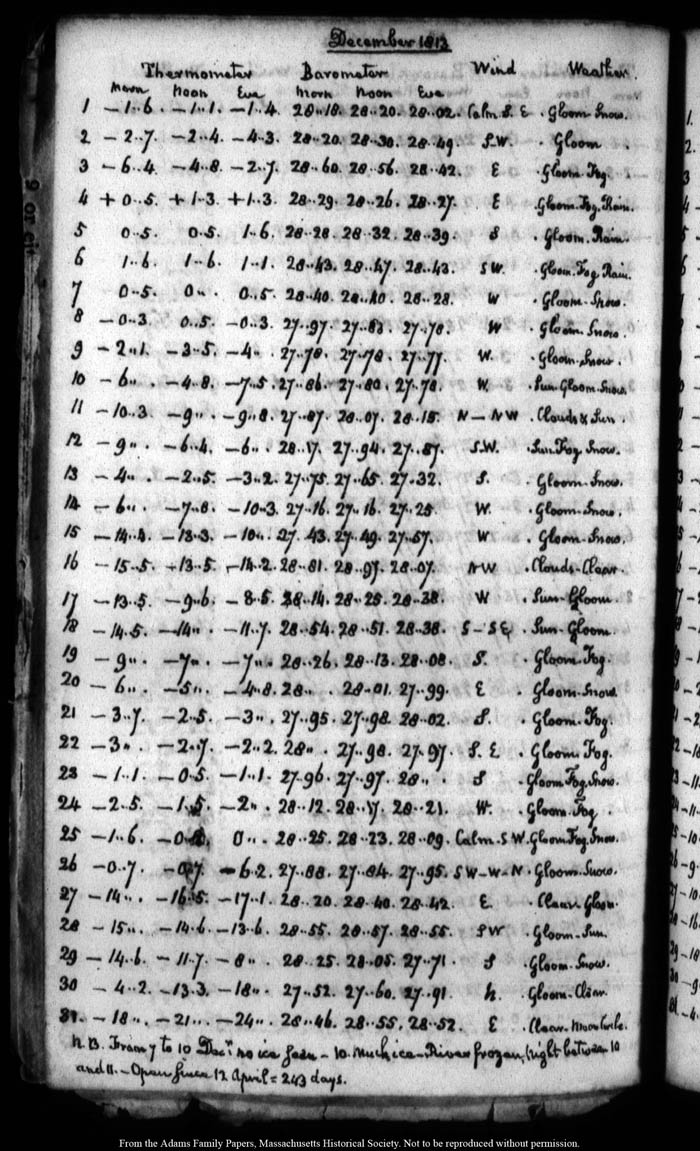 December 1813
Thermometer Barometer Wind Weather.
Morn Noon Eve Morn Noon Eve
1 – 1..6. – 1..1. – 1..4. 28..18. 28..20. 28..02. Calm. S. E. Gloom. Snow.
2 – 2..7. – 2..4. – 4..3. 28..20. 28..30. 28..49. S.W. Gloom
3 – 6..4. – 4..8. – 2..7. 28..60. 28..56. 28..42. E Gloom. Fog.
4 + 0..5. + 1..3. + 1..3. 28..29. 28..26. 28..27. E Gloom. Fog. Rain.
5 0..5. 0..5. 1..6. 28..28. 28..32. 28..39. S Gloom. Rain.
6 1..6. 1..6. 1..1. 28..43. 28..47. 28..43. SW. Gloom. Fog. Rain.
7 0..5. 0.. . 0..5. 28..40. 28..40. 28..28. W Gloom. Snow.
8 – 0..3. 0..5. – 0..3. 27..97. 27..83. 27..78. W Gloom. Snow.
9 – 2..1. – 3..5. – 4.. . 27..78. 27..78. 27..77. W. Gloom. Snow.
10 – 6.. . – 4..8. – 7..5. 27..86. 27..80. 27..78. W. Sun. Gloom. Snow.
11 – 10..3. – 9.. . – 9..8. 27..87. 28..07. 28..15. N – NW. Clouds & Sun.
12 – 9.. . – 6..4. – 6.. . 28..17. 27..94. 27..57. S.W. Sun. Fog. Snow.
13 – 4.. . – 2..5. – 3..2. 27..75. 27..65. 27..32. S. Gloom. Snow.
14 – 6.. . – 7..8. – 10..3. 27..16. 27..16. 27..25. W. Gloom. Snow.
15 – 14..4. – 13..3. – 10.. . 27..43. 27..49. 27..57. W. Gloom. Snow.
16 – 15..5. – 13..5. – 14..2. 28..81. 28..97. 28..07. NW Clouds. Clear.
17 – 13..5. – 9..6. – 8..5. 28..14. 28..25. 28..38. W Sun. Gloom.
18 – 14..5. – 14.. . – 11..7. 28..54. 28..51. 28..38. S – SE. Sun. Gloom.
19 – 9.. . – 7.. . – 7.. . 28..26. 28..13. 28..08. S. Gloom. Fog.
20 – 6.. . – 5.. . – 4..8. 28.. . 28..01. 27..99. E Gloom. Snow
21 – 3..7. – 2..5. – 3.. . 27..95. 27..98. 28..02. S. Gloom. Fog.
22 – 3.. . – 2..7. – 2..2. 28.. . 27..98. 27..97. S. E Gloom. Fog.
23 – 1..1. – 0..5. – 1..1. 27..96. 27..97. 28.. . S Gloom. Fog. Snow.
24 – 2..5. – 1..5. – 2.. . 28..12. 28..17. 28..21. W. Gloom. Fog.
25 – 1..6. 0.. . 28..25. 28..23. 28..09. Calm. S W. Gloom. Fog. Snow.
26 – 0..7. – 0..7. – 6..2. 27..88. 27..84. 27..95. SW – W – N. Gloom. Snow.
27 – 14.. . – 16..5. – 17..1. 28..20. 28..40. 28..42. E Clear. Gloom.
28 – 15.. . – 14..6. – 13..6. 28..55. 28..57. 28..55. SW Gloom. Sun.
29 – 14..6. – 11..7. – 8.. . 28..25. 28..05. 27..71. S Gloom. Snow.
30 – 4..2. – 13..3. – 18.. . 27..52. 27..60. 27..91. N. Gloom. Clear.
31. – 18.. . – 21.. . – 24.. . 28..46. 28..55. 28..52. E Clear.
N.B. From 7 to 10 Decr. no ice seen – 10. Much ice – River frozen, (night between 10
and 11. – Open since 12 April = 243 days.
From the Adams Family Papers, Massachusetts Historical Society. Not to be reproduced without permission.